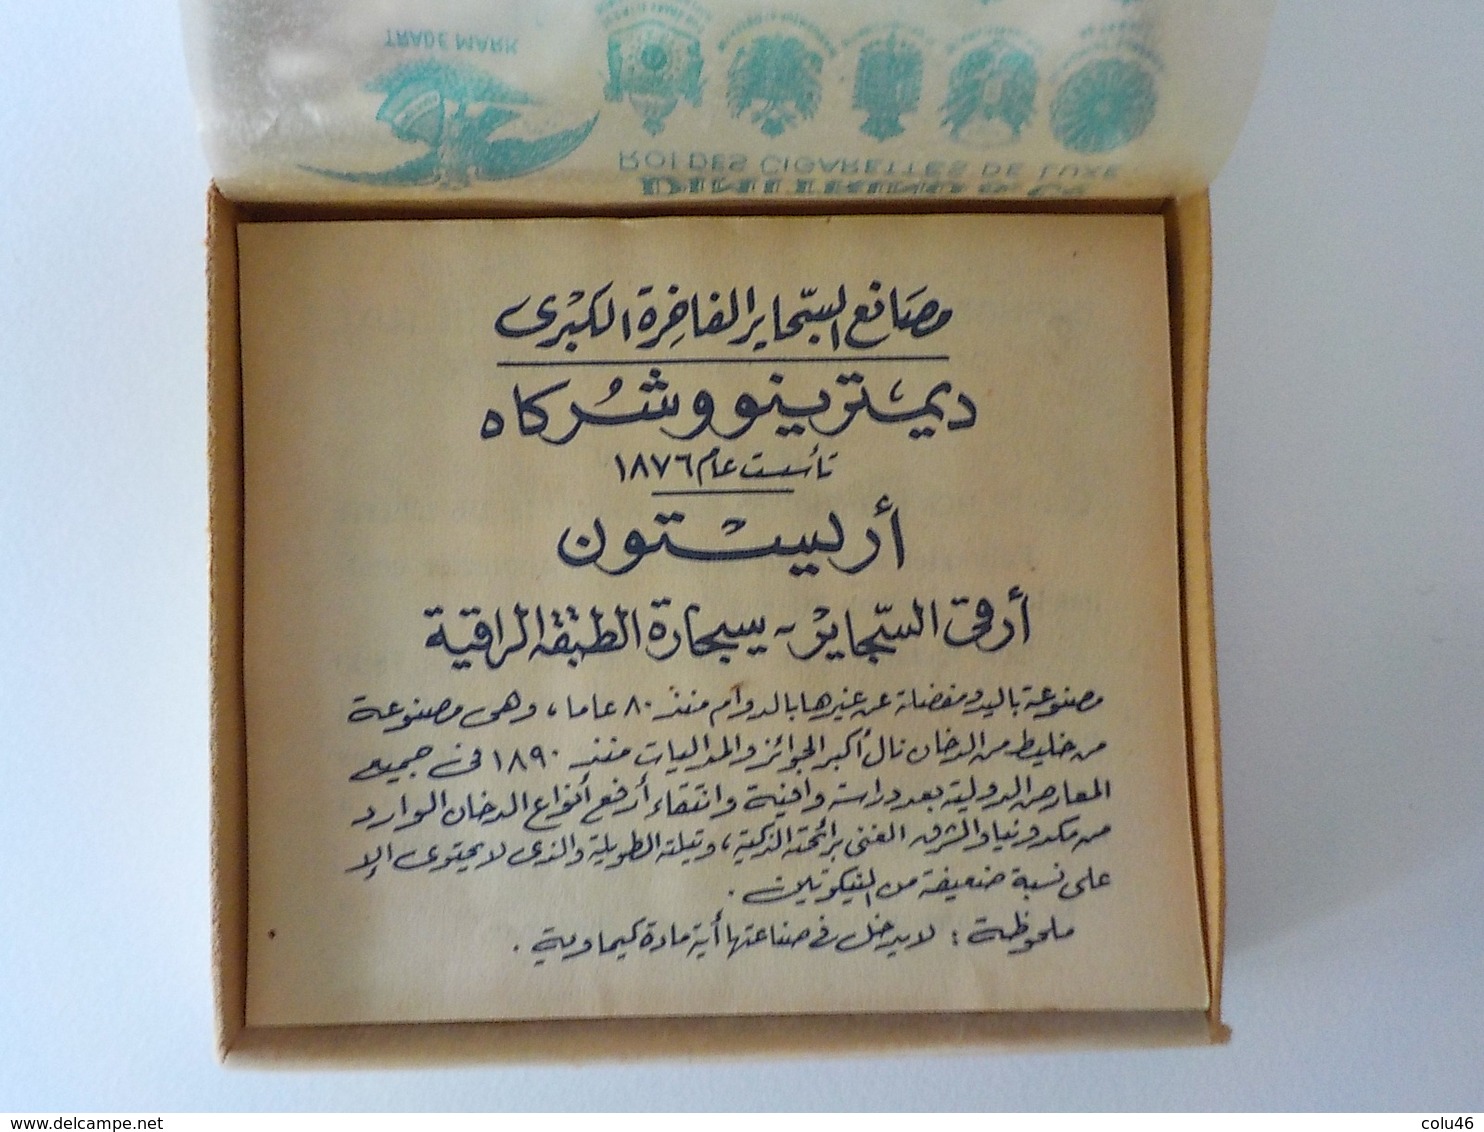 TRADE MARK
ROI DES CIGARETTES DE LUXE
DIMITRINO & Co
مصانع السجاير الفاخرة الكبرى
ديمترينو وشركاه
تأسست عام ١٨٧٦
أرليستون
أرقى السجاير - سيجارة الطبقة الراقية
مصنوعة باليد ومفضلة عن غيرها بالدوام منذ ٨٠ عاما، وهى مصنوعة
من خليط من الدخان نال أكبر الجوائز والمداليات منذ ١٨٩٠ فى جميع
المعارض الدولية بعد دراسة وافية وانتقاء أرفع أنواع الدخان الوارد
من مكدونيا والشرق الغنى برائحته الذكية، وتيلته الطويلة والذى لا يحتوى إلا
على نسبة ضعيفة من النيكوتين.
ملحوظة: لا يدخل فى صناعتها أية مادة كيماوية.
delcampe.net
colu46